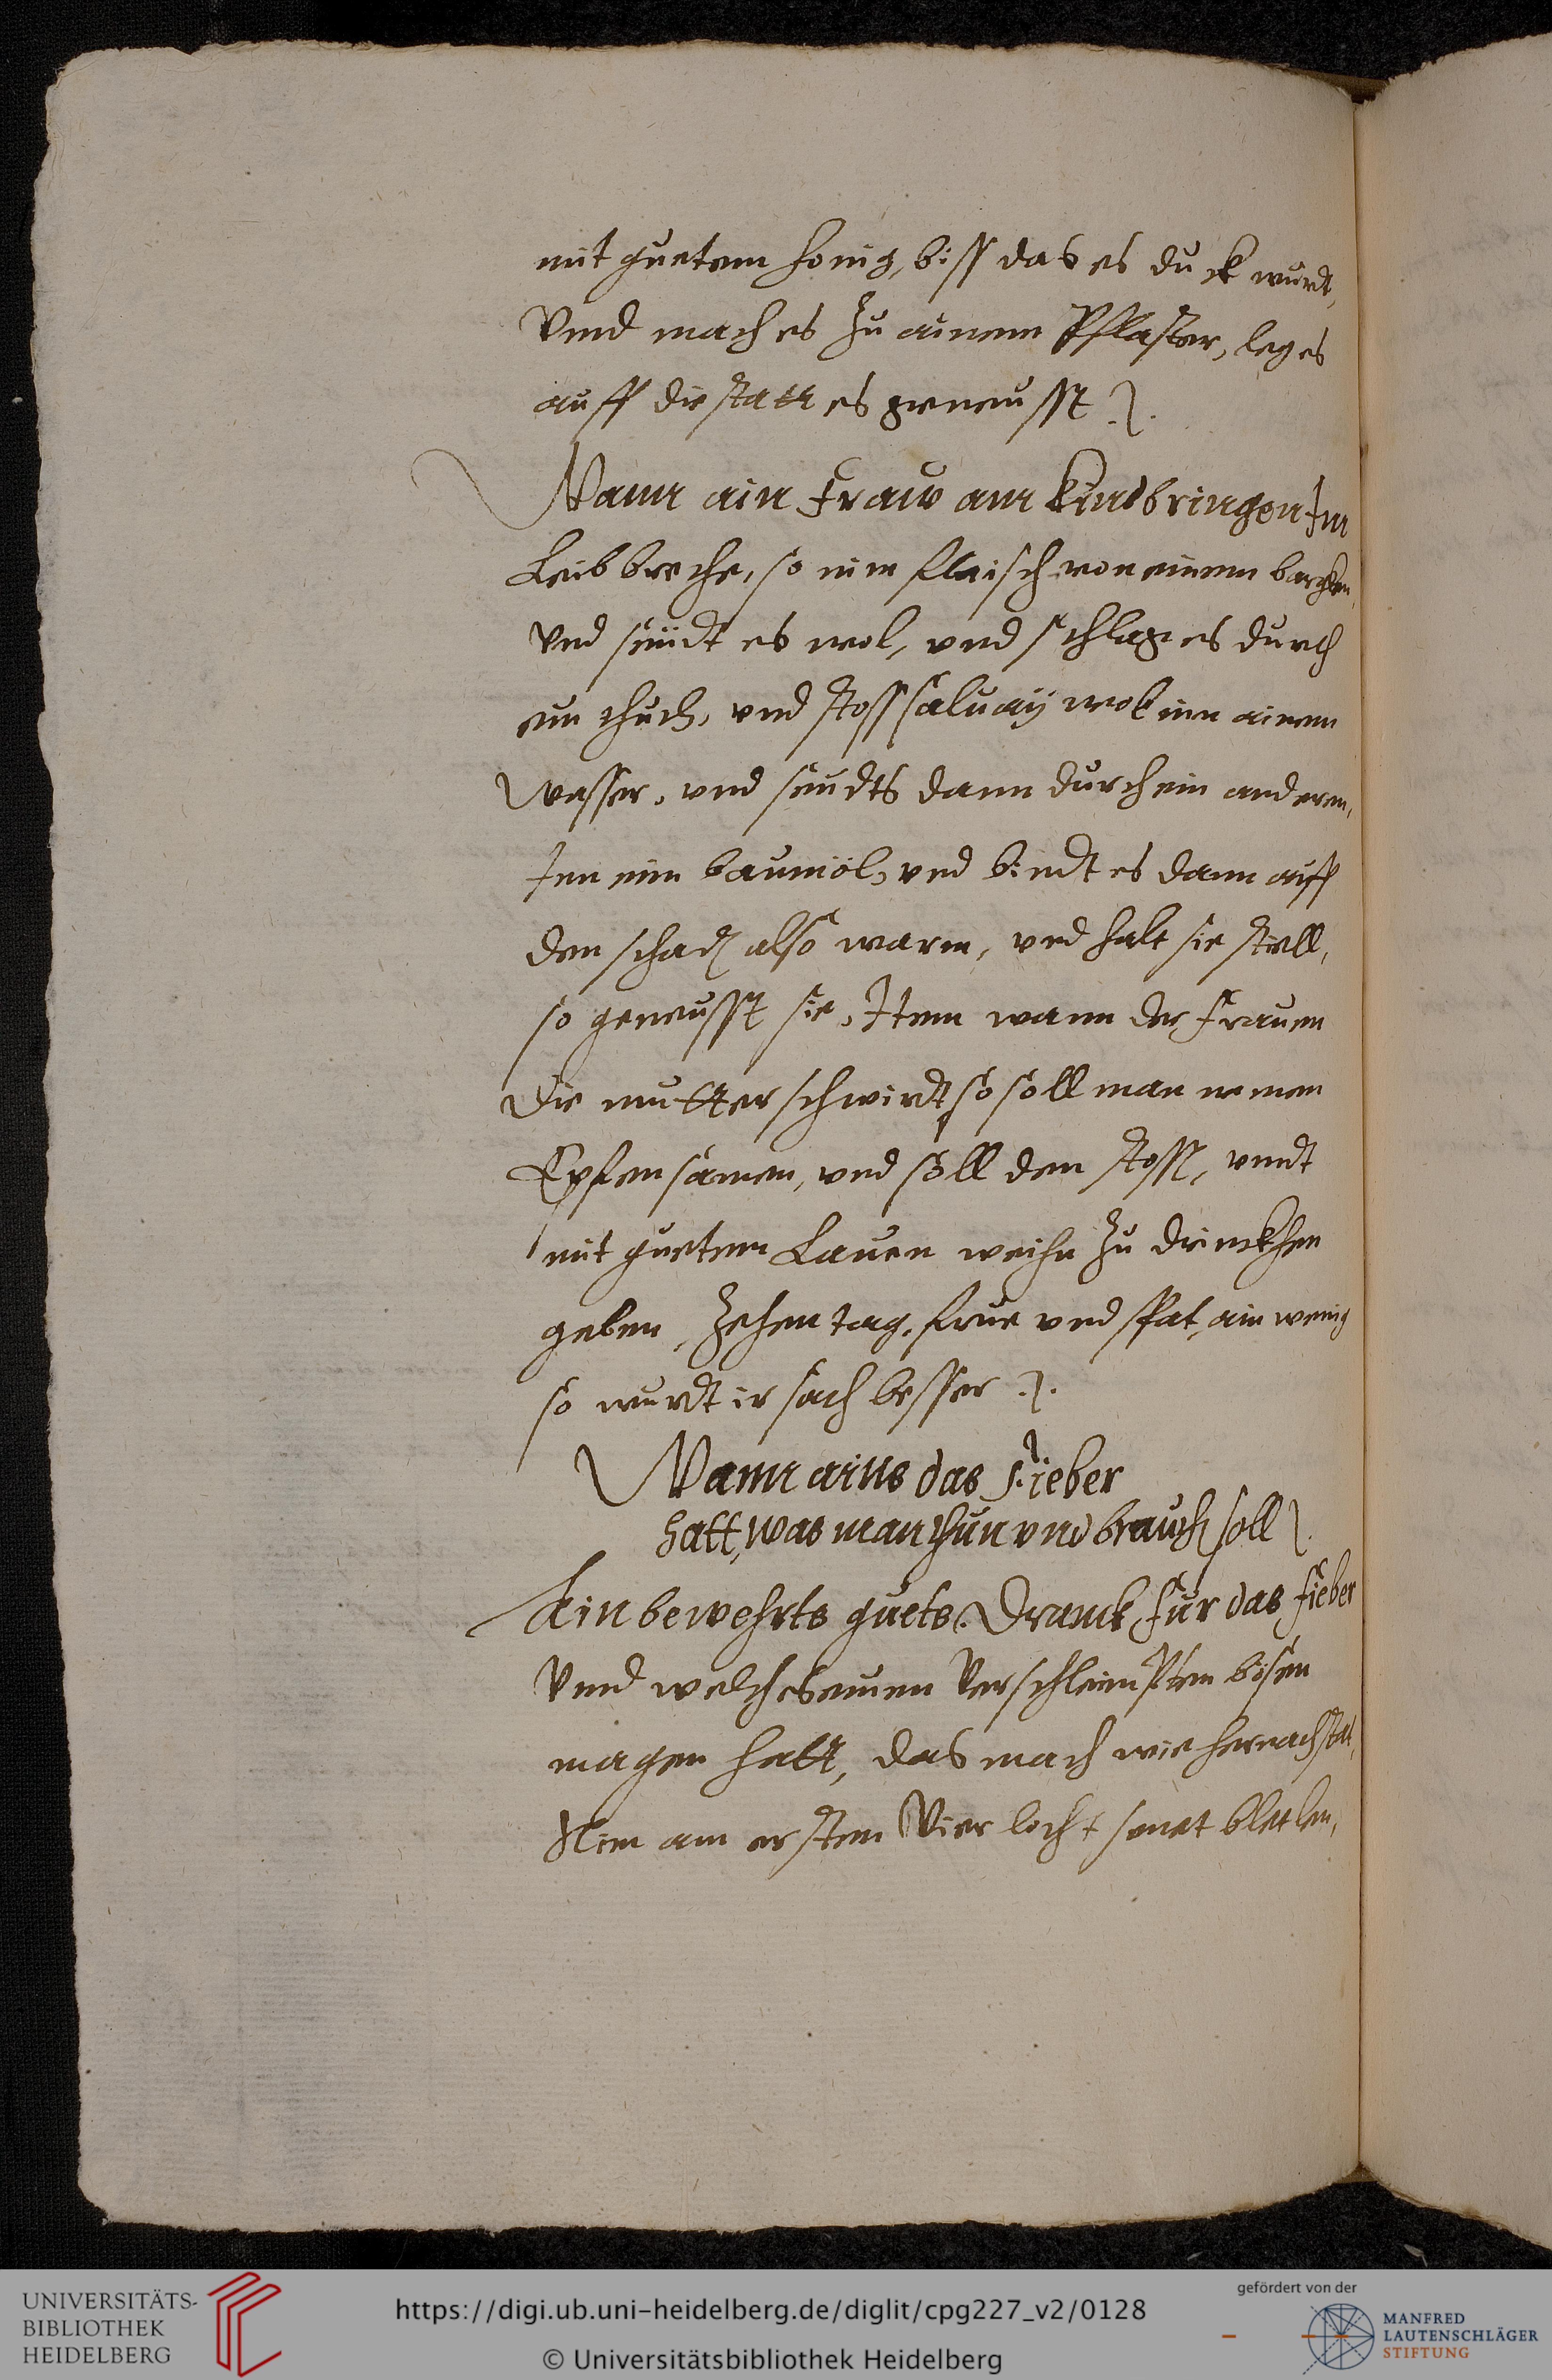 mit guetem honig, biss das es duck wurdt,
Vnnd mach es zu ainem Pfflaster, leg es
auff die statt es geneusst .
Wann ain Fraw am Kindbringen Im
Leib breche, so nim flaisch von einem barchen
Vnd seudt es wol, vnd schlag es durch
ein thuch, vnd stoss saluay wol inn ainem
Wasser, vnd seudts dann durch ein anderen,
Inn ein baumöl, vnd bindt es dann auff
den schadn also warm, vnd halt sie still,
so geneusst sie, Item wann der Frauen
die mutter schwirdt so soll man nemen
Epffen samen, vnd soll den stossn, vnndt
mit guetem Lauen weihn zu drinckhen
geben, Zehen tag, frue vnd spat, ain wenig
so wurdt ir sach besser .
Wann ains das Fieber
hatt, was man thun vnd brauchn soll
Ain bewehrts guets Dranck für das fieber
Vnnd welches einen Verschleimpten bösen
magen hatt, das mach wie hernach stat,
Nim am ersten Vier locht senet bletlen,
UNIVERSITÄTS-
BIBLIOTHEK
HEIDELBERG
https://digi.ub.uni-heidelberg.de/diglit/cpg227_v2/0128
© Universitätsbibliothek Heidelberg
gefördert von der
MANFRED
LAUTENSCHLÄGER
STIFTUNG